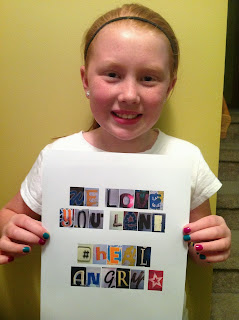 WE LOVE
YOU LANI
#HEAL
ANGRY